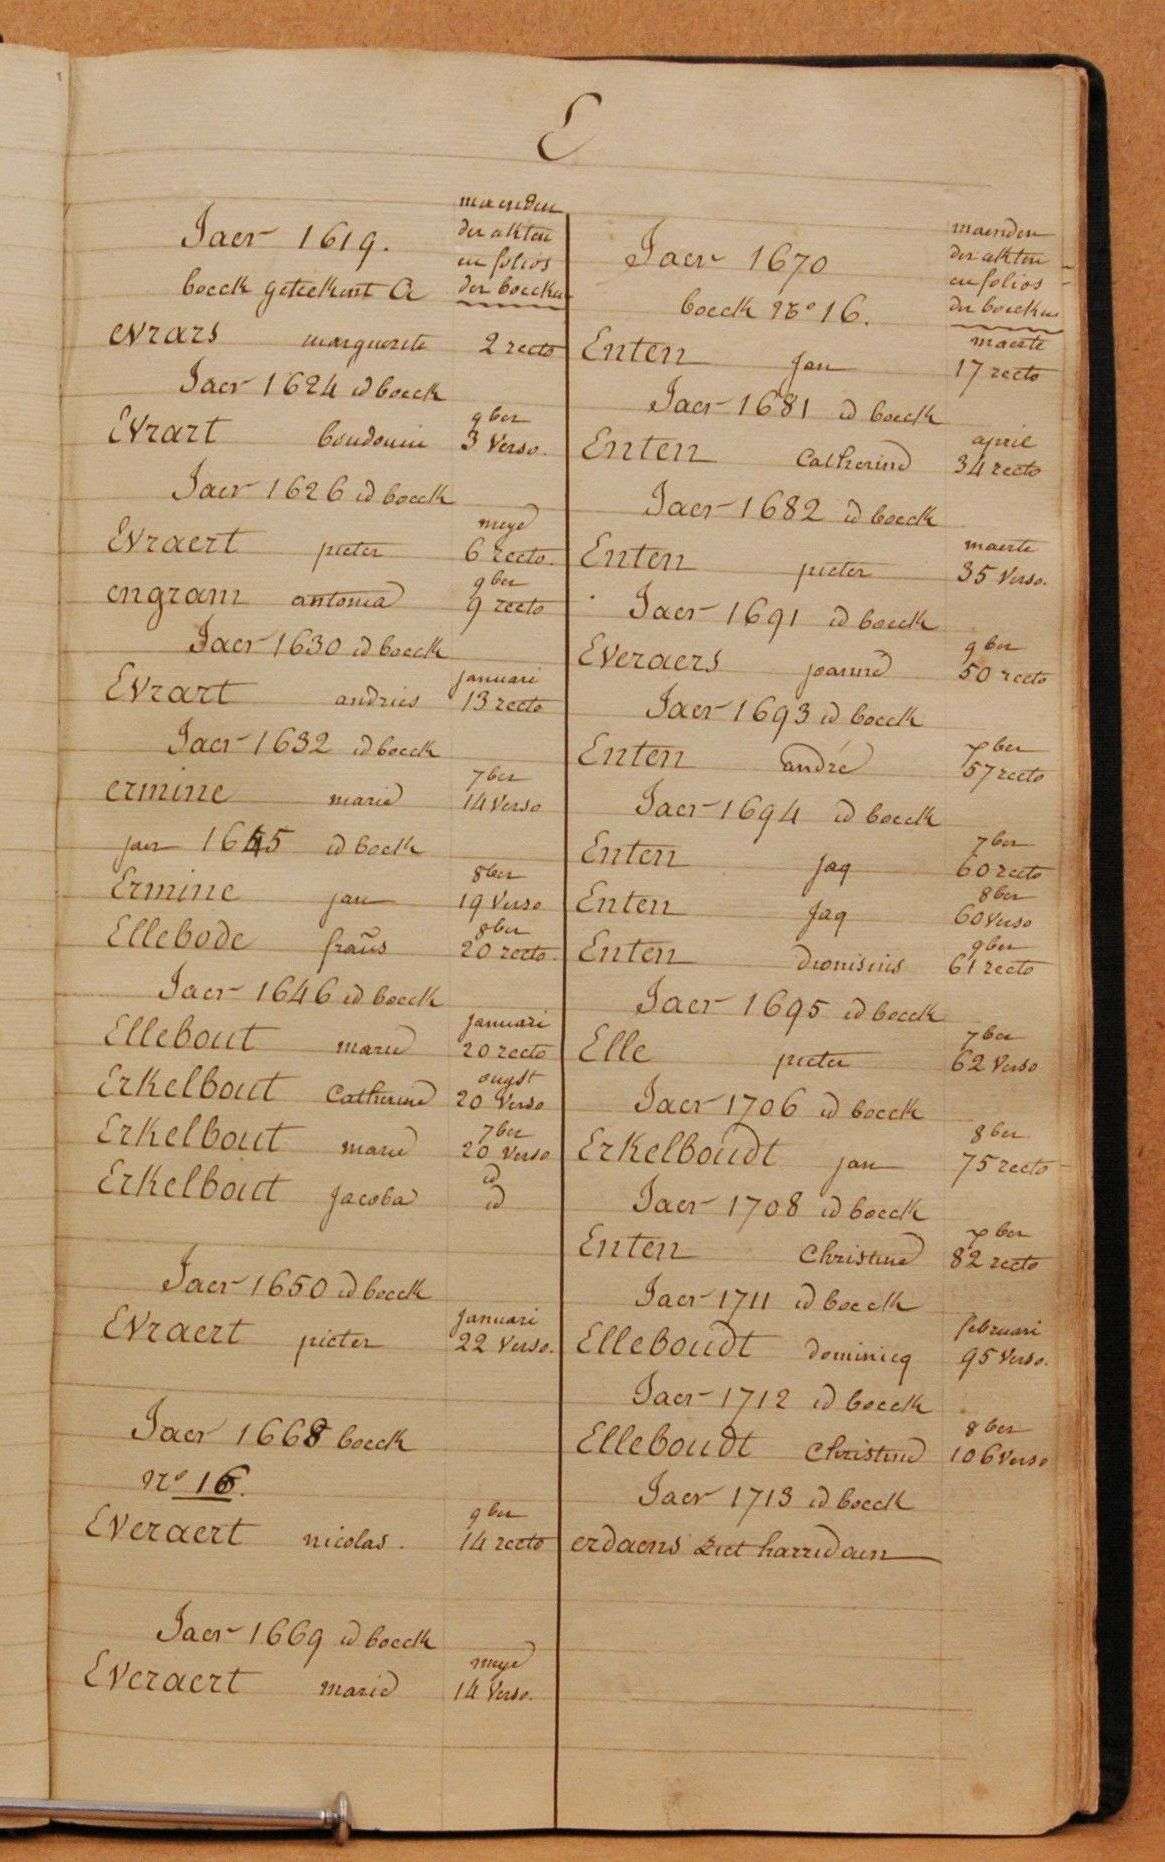 E
Jaer 1619.
maenden
der akten
en folios
der boecken
boeck geteekent A
evrars marguerite 2 recto
Jaer 1624 id boeck
9ber
Evrart boudouin 3 verso.
Jaer 1626 id boeck
meye
Evraert pieter 6 recto.
9ber
engram antonia 9 recto
Jaer 1630 id boeck
januari
Evrart andries 13 recto
Jaer 1632 id boeck
7ber
ermine marie 14 verso
jaer 1645 id boeck
8ber
Ermine jan 19 verso
8ber
Ellebode frañs 20 recto.
Jaer 1646 id boeck
januari
Ellebout marie 20 recto
ougst
Erkelbout Catherine 20 verso
7ber
Erkelbout marie 20 verso
id
Erkelbout jacoba id
Jaer 1650 id boeck
januari
Evraert pieter 22 verso.
Jaer 1668 boeck
no 16.
9ber
Everaert nicolas. 14 recto
Jaer 1669 id boeck
meye
Everaert marie 14 verso.
Jaer 1670
maenden
der akten
en folios
der boecken
boeck No 16.
maerte
Enten jan 17 recto
Jaer 1681 id boeck
april
Enten Catherine 34 recto
Jaer 1682 id boeck
maerte
Enten pieter 35 verso.
Jaer 1691 id boeck
9ber
Everaers joanne 50 recto
Jaer 1693 id boeck
7ber
Enten andré 57 recto
Jaer 1694 id boeck
7ber
Enten jaq 60 recto
8ber
Enten jaq 60 verso
9ber
Enten dionisius 61 recto
Jaer 1695 id boeck
7ber
Elle pieter 62 verso
Jaer 1706 id boeck
8ber
Erkelboudt jan 75 recto
Jaer 1708 id boeck
7ber
Enten Christine 82 recto
Jaer 1711 id boeck
februari
Elleboudt dominicq 95 verso.
Jaer 1712 id boeck
8ber
Elleboudt Christine 106 verso
Jaer 1713 id boeck
erdaens ziet harredaen